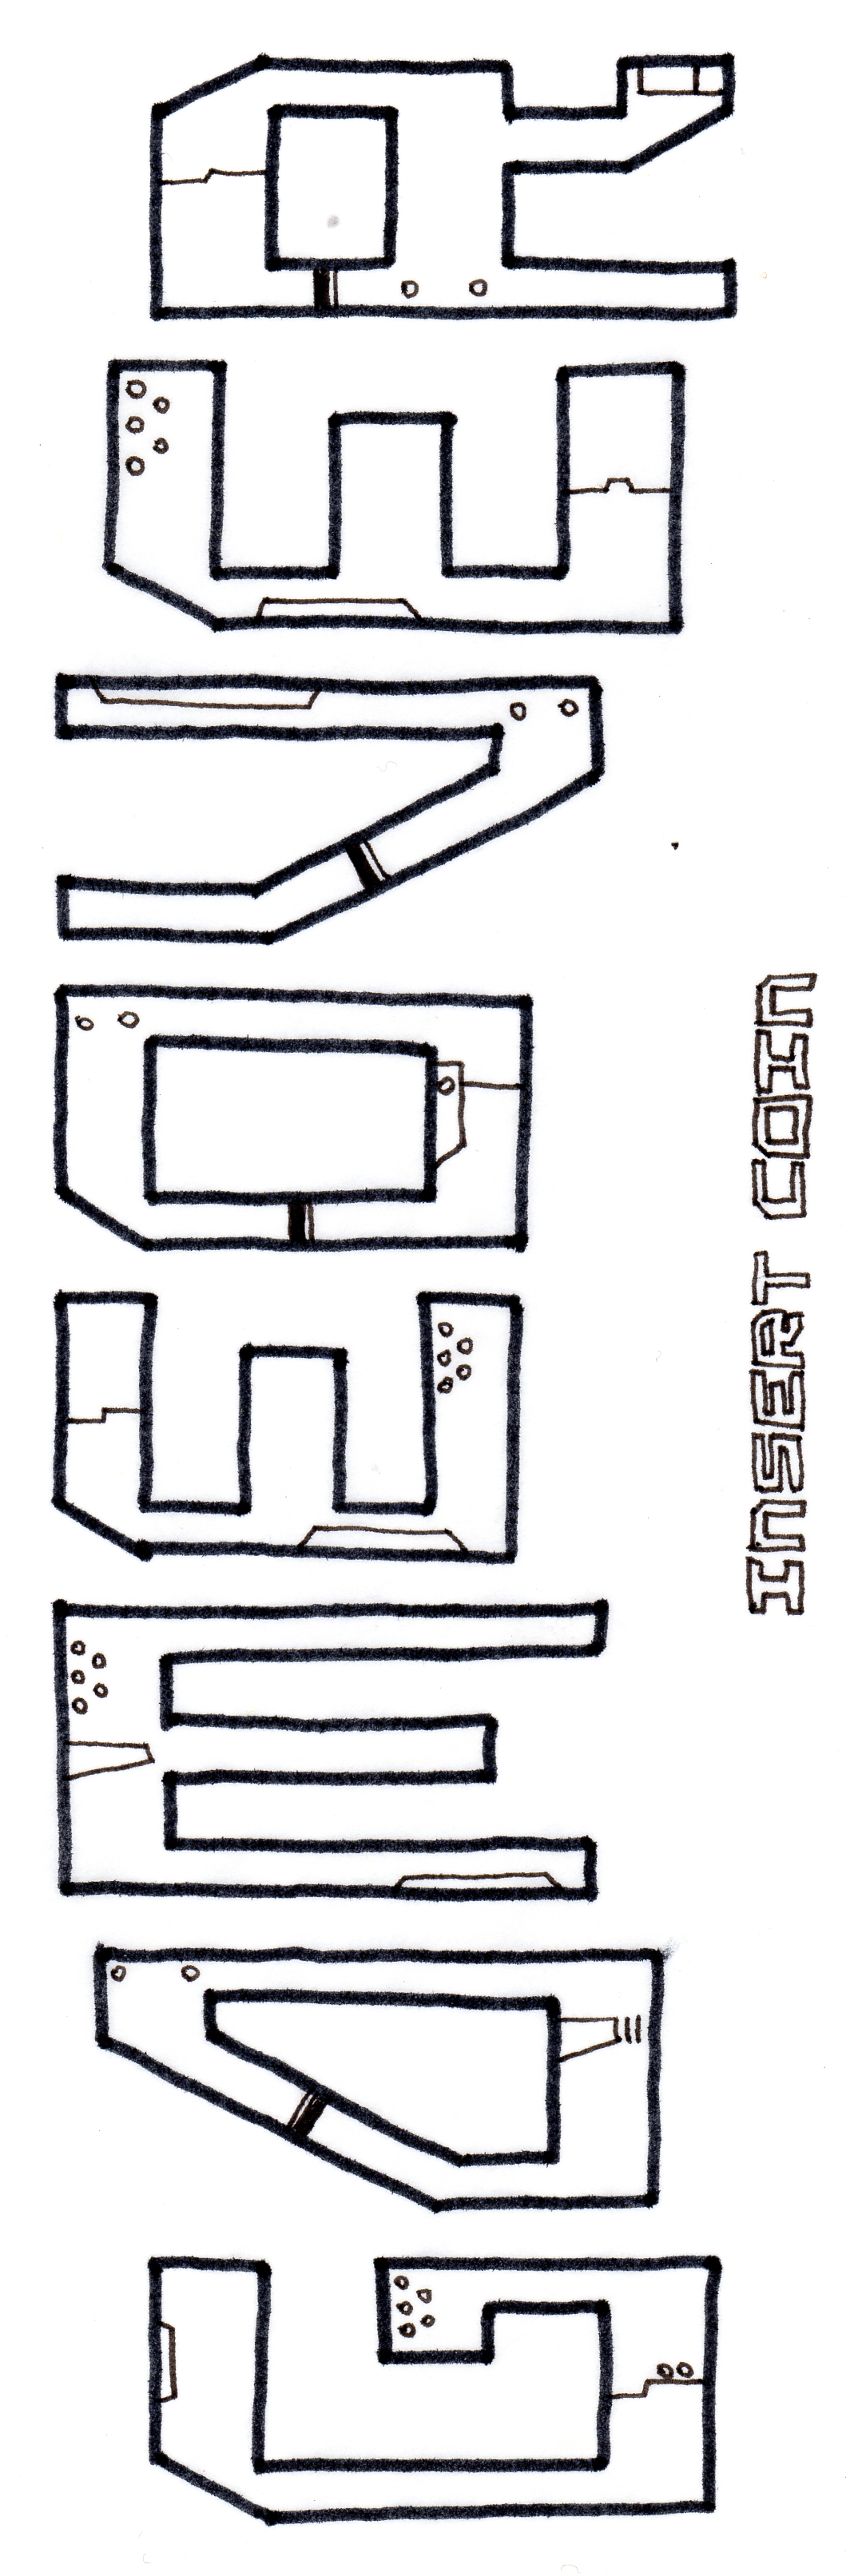 GAME OVER
INSERT COIN